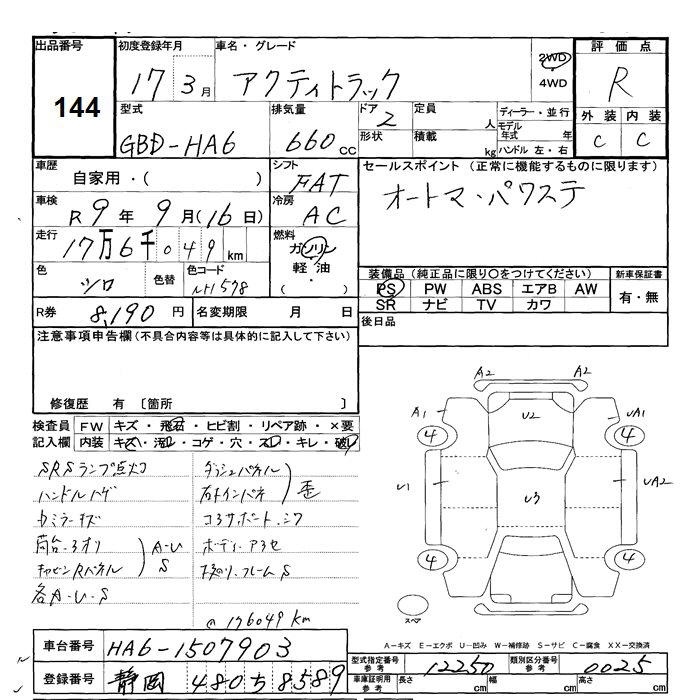 出品番号 初度登録年月 車名・グレード 評価点
144 17 3月 アクティトラック 2WD 4WD R
型式 排気量 ドア 定員 ディーラー・並行 外装 内装
GBD-HA6 660cc 2 人 モデル年式 年 C C
形状 積載 kg ハンドル 左・右
車歴 シフト セールスポイント (正常に機能するものに限ります)
自家用・( ) FAT オートマ・パワステ
車検 R 9年 9月(16日) 冷房 AC
走行 17万6千049km 燃料 ガソリン
軽油・( )
色 シロ 色替 色コード NH578
装備品 (純正品に限り○をつけてください) 新車保証書
PS PW ABS エアB AW 有・無
SR ナビ TV カワ
R券 8,190円 名変期限 月 日 後日品
注意事項申告欄(不具合内容等は具体的に記入して下さい)
修復歴 有 〔箇所 〕
検査員 FW キズ・飛石・ヒビ割・リペア跡・×要
記入欄 内装 キズ・汚レ・コゲ・穴・スレ・キレ・破レ
SRSランプ点灯 ダッシュパネル
ハンドルハゲ 右インパネ 歪
カミラーキズ コアサポート・シワ
荷台・アオリ A・U ボディーアワセ
キャビンRパネル S フレームS
各A・U・S
@176049km
A2 A2
A1 U2 UA1
4 4
U1 U3 UA2
4 4
スペア
A-キズ E-エクボ U-凹み W-補修跡 S-サビ C-腐食 XX-交換済
車台番号 HA6-1507903
型式指定番号 参考 12250 類別区分番号 参考 0025
登録番号 静岡 480 5 8589
車庫証明用 参考 長さ cm 幅 cm 高さ cm